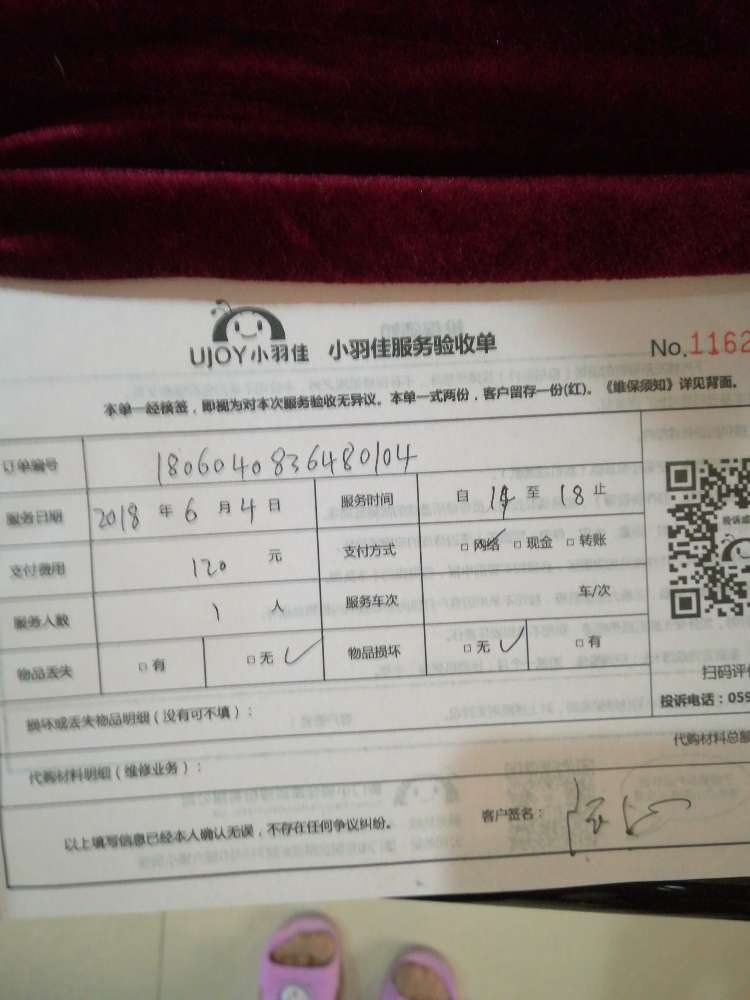 UJOY小羽佳 小羽佳服务验收单 No.1162
本单一经核签，即视为对本次服务验收无异议。本单一式两份，客户留存一份(红)。《维保须知》详见背面。
订单编号 1806040836480104
服务日期 2018 年 6 月 4 日 服务时间 自 14 至 18 止
支付费用 120 元 支付方式 □网络 □现金 □转账
服务人数 1 人 服务车次 车/次
物品丢失 □有 □无 物品损坏 □无 □有
扫码评价
投诉电话：059
损坏或丢失物品明细（没有可不填）：
代购材料总额
代购材料明细（维修业务）：
以上填写信息已经本人确认无误，不存在任何争议纠纷。 客户签名：